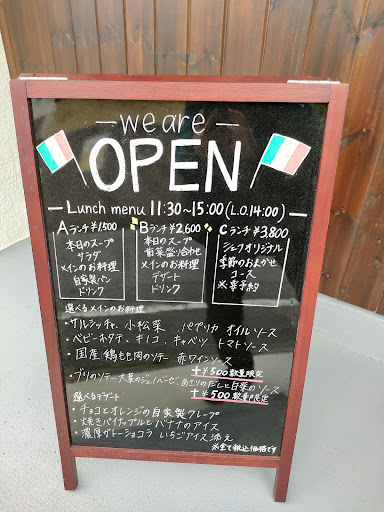 we are
OPEN
Lunch menu 11:30~15:00 (L.O.14:00)
Aランチ ¥1500
本日のスープ
サラダ
メインのお料理
自家製パン
ドリンク
Bランチ ¥2,600
本日のスープ
前菜盛り合わせ
メインのお料理
デザート
ドリンク
Cランチ ¥3,800
シェフオリジナル
季節のおまかせ
コース
※要予約
選べるメインのお料理
・サルシッチャ、小松菜、パプリカ オイルソース
・ベビーホタテ、キノコ、キャベツ トマトソース
・国産鶏もも肉のソテー 赤ワインソース
+¥500数量限定
・ブリのソテー 大葉のジェノベーゼ、あさりのだしと白菜のソース
+¥500数量限定
選べるデザート
・チョコとオレンジの自家製クレープ
・焼きパイナップルとバナナのアイス
・濃厚ガトーショコラ いちごアイス添え
※全て税込価格です